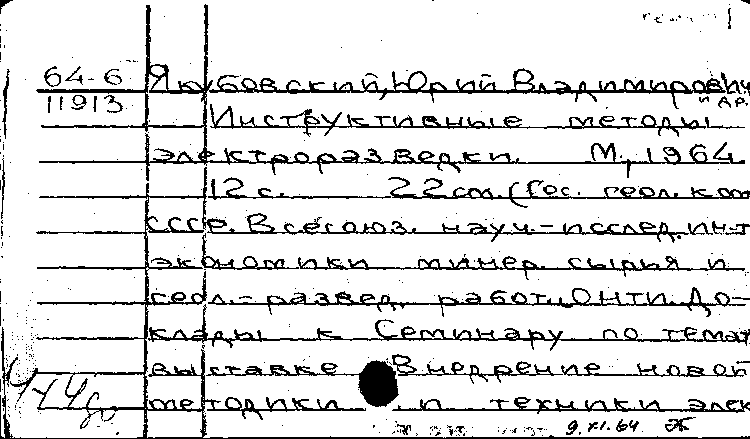 64-6 Якубовский, Юрий Владимирович
11913 и др.
Инструктивные методы
электроразведки. М., 1964.
12 с. 22 см. (Гос. геол. ком.
СССР. Всесоюз. науч.-исслед. ин-т
экономики минер. сырья и
геол.-развед. работ. ОНТИ. До-
клады к Семинару по темат.
выставке Внедрение новой
методики и техники элек
9.XI.64